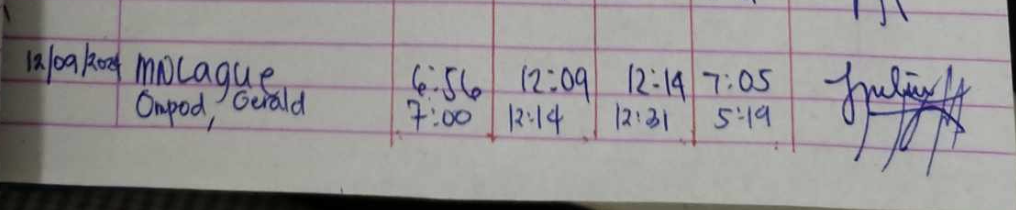 12/09/2024 MNLague 6:56 12:09 12:14 7:05
Ompod, Gerald 7:00 12:14 12:31 5:19